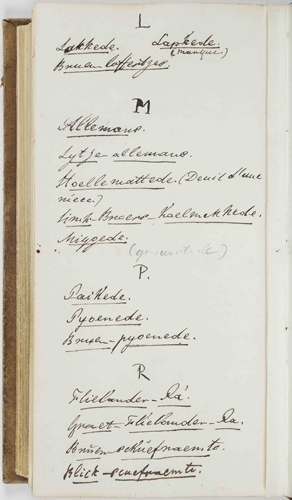 L
Lakkede. Lapkede.
(manque.)
Bruen-loffertges.
M
Allemans.
Lytje-allemans.
Hoellemattede. (Deuil d'une
niece.)
Kaelmekkede.
Niggede.
P.
Paikede.
Pyoenede.
Bruen-pyoenede.
R
Flielander-Ra.
Graet-Flielander-Ra.
Bruen-schuefraemte.
Blick-scuefraemte.